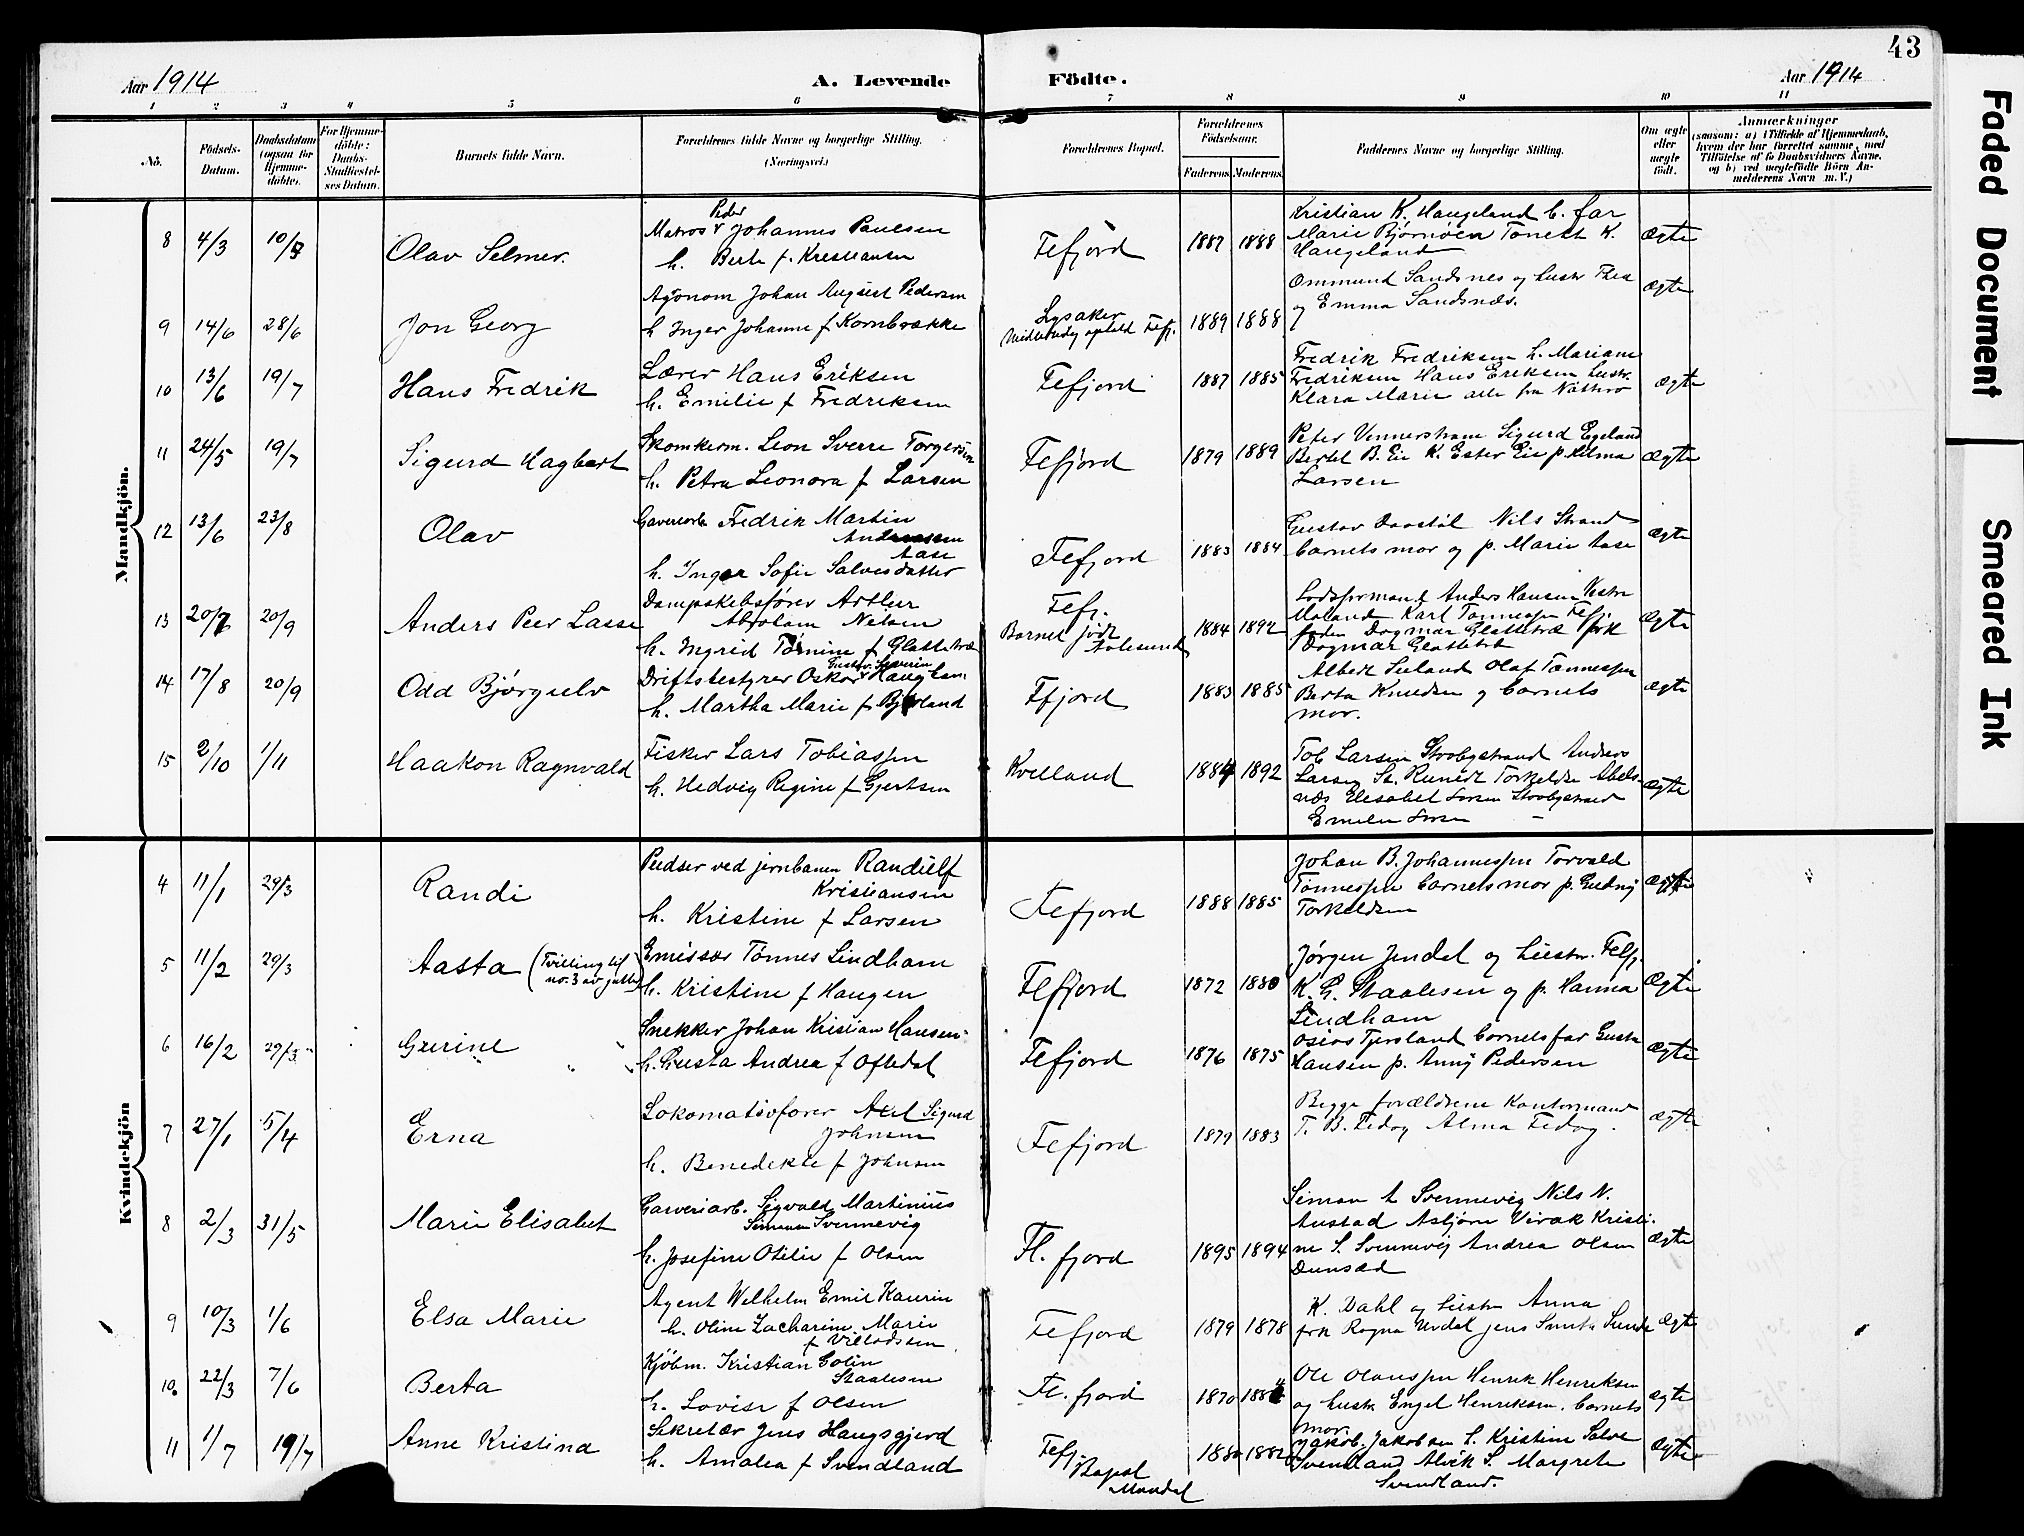 43
Aar 1914
A. Levende
Födte.
Aar 1914
1 2 3 4 5 6 7 8 9 10 11
No.
Födsels-
Datum.
Daabsdatum
(ogsaa for
Hjemme-
döbte).
For Hjemme-
döbte:
Daabs-
Stadfæstel-
ses Datum.
Barnets fulde Navn.
Forældrenes fulde Navne og borgerlige Stilling.
(Næringsvei.)
Forældrenes Bopæl.
Forældrenes
Födselsaar.
Faderens. Moderens.
Faddernes Navne og borgerlige Stilling.
Om ægte
eller
uægte
födt.
Anmærkninger
(saasom: a) i Tilfælde af Hjemmedaab,
hvem der har forrettet samme, med
Tilföielse af to Daabsvidners Navne,
og b) ved uægtefödte Börn An-
melderens Navn m. V.)
Mandkjön.
8 4/3 10/5 Olav Selmer.
Peder
Matros Johannes Paulsen
h. Berte f. Kristiansen
Fefjord 1887 1888
Kristian K. Haugeland b. far
Marie Bjørnøen Tonette K.
Haugeland
Ægte
9 14/6 28/6 Jon Georg
Agronom Johan August Pedersen
h Inger Johanne f Kornbrække
Lysaker
Midlertidig ophold Fefj.
1889 1888
Ommund Sandsnes og hustr Thea
og Emma Sandsnæs.
Ægte
10 13/6 19/7 Hans Fredrik
Lærer Hans Eriksen
h. Emilie f Fredriksen
Fefjord 1887 1885
Fredrik Fredriksen h. Mariane
Fredriksen Hans Eriksen hustr.
Klara Marie alle fra Nøtterø
Ægte
11 24/5 19/7 Sigurd Hagbart
Skomkerm. Leon Sverre Torgersen
h. Petra Leonora f Larsen
Fefjord 1879 1889
Peter Vennerstrøm Sigurd Egeland
Bertel B. Eie K. Ester Eie p. Alma
Larsen
Ægte
12 13/6 23/8 Olav
Garveriarb Fredrik Martin
Andreassen
Aase
h. Inger Sofie Salvesdatter
Fefjord 1883 1884
Gustav Daastøl Nils Strand
barnets mor og p. Marie Aase
Ægte
13 20/7 20/9 Anders Peer Lasse
Dampskibsfører Arthur
Abraham Nilsen
h. Ingrid Tomine f Glattetræ
Fefj.
Barnet født
Aalesund
1884 1892
Lodsformand Anders Hansen Vestre
Moland Karl Tønnessen Fefj
frøken Dagmar Glattetræ frk
Dagmar Glattetræ
Ægte
14 17/8 20/9 Odd Bjørgulv
Gustav Severin
Driftsbestyrer Oskar Hauglan
h. Martha Marie f Bjørland
Ffjord 1883 1885
Albert Seland Olaf Tønnessen
Berta Knudsen og barnets
mor.
Ægte
15 2/10 1/11 Haakon Ragnvald
Fisker Lars Tobiassen
h. Hedvig Regine f Gjertsen
Kvelland 1884 1892
Tob Larsen Stobystrand Anders
Larsen St. Torkelds Abels-
næs Elisabet Larsen
Emilie Larsen
Ægte
Kvindekjön
4 11/1 29/3 Randi
Pudser ved jernbanen Randulf
Kristiansen
h. Kristine f Larsen
Fefjord 1888 1885
Johan B. Johannessen Torvald
Tønnessen barnets mor p. Gudny
Torkeldsen
Ægte
5 11/2 29/3 Aasta (Tvilling til
no. 3 av gutter)
Emissær Tønnes Lindham
h. Kristine f Haugen
Flefjord 1872 1880
Jørgen Jendal og hustr. Felfj.
K. G. Staalesen og p. Hanna
Lindham
Ægte
6 16/2 29/3 Gurine
Snekker Johan Kristian Hansen
h. Gusta Andrea f Oftedal
Fefjord 1876 1875
Osias Tjersland barnets far Gusta
Hansen p. Anny Pedersen
Ægte
7 27/1 5/4 Erna
Lokomotivfører Axel Sigurd
Johnsen
h. Benedikte f Johnsen
Fefjord 1879 1883
Begge forældrene Kontormand
T. B. Fedog Alma Fedog.
Ægte
8 2/3 31/5 Marie Elisabet
Garveriarb. Sigvald Martinius
Simonsen Svennevig
h. Josefine Otilie f Olsen
Fl. fjord 1895 1894
Simon A Svennevig Nils N.
Austad Asbjørn Virak Kristi-
ne S. Svennevig Andrea Olsen
Dunsæd
Ægte
9 10/3 1/6 Elsa Marie
Agent Wilhelm Emil Kaurin
h. Oline Zacharine Marie
f Villadssen.
Fefjord 1879 1878
K. Dahl og hustr Anna
frk Ragna Uvdal jens Sunde
Ægte
10. 22/3 7/6 Berta
Kjøbm. Kristian Colin
Staalesen
h. Lovise f Olsen
Fl. fjord 1870
Ole Olaussen Henrik Henriksen
og hustr Engel Henriksen. barnets
mor
Ægte
11 1/7 19/7 Anne Kristina
Sekretær Jens Haugsgjerd
h. Amalia f Svendland
Fefj.
Bopæl
Mandal
1880 1882
Jakob Jakobsen S. Kristine Salve
Svendland Alvik S. Margrete
Svendland.
Ægte
Faded Document
Smeared Ink